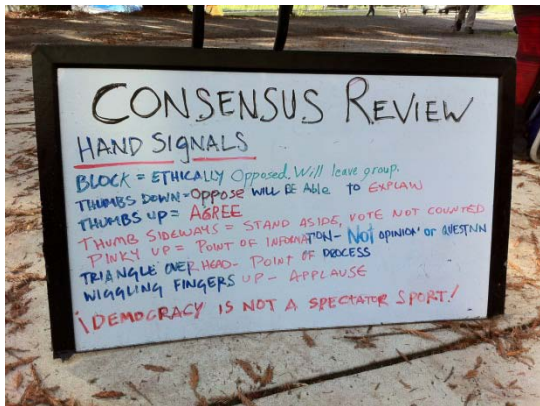 CONSENSUS REVIEW
HAND SIGNALS
BLOCK = ETHICALLY Opposed. Will leave group.
THUMBS DOWN = Oppose WILL BE Able to EXPLAIN
THUMBS UP = AGREE
THUMB SIDEWAYS = STAND ASIDE, VOTE NOT COUNTED
PINKY UP = POINT OF INFORMATION - Not OPINION or QUESTNN
TRIANGLE OVER HEAD - POINT OF PROCESS
WIGGLING FINGERS UP - APPLAUSE
¡DEMOCRACY IS NOT A SPECTATOR SPORT!